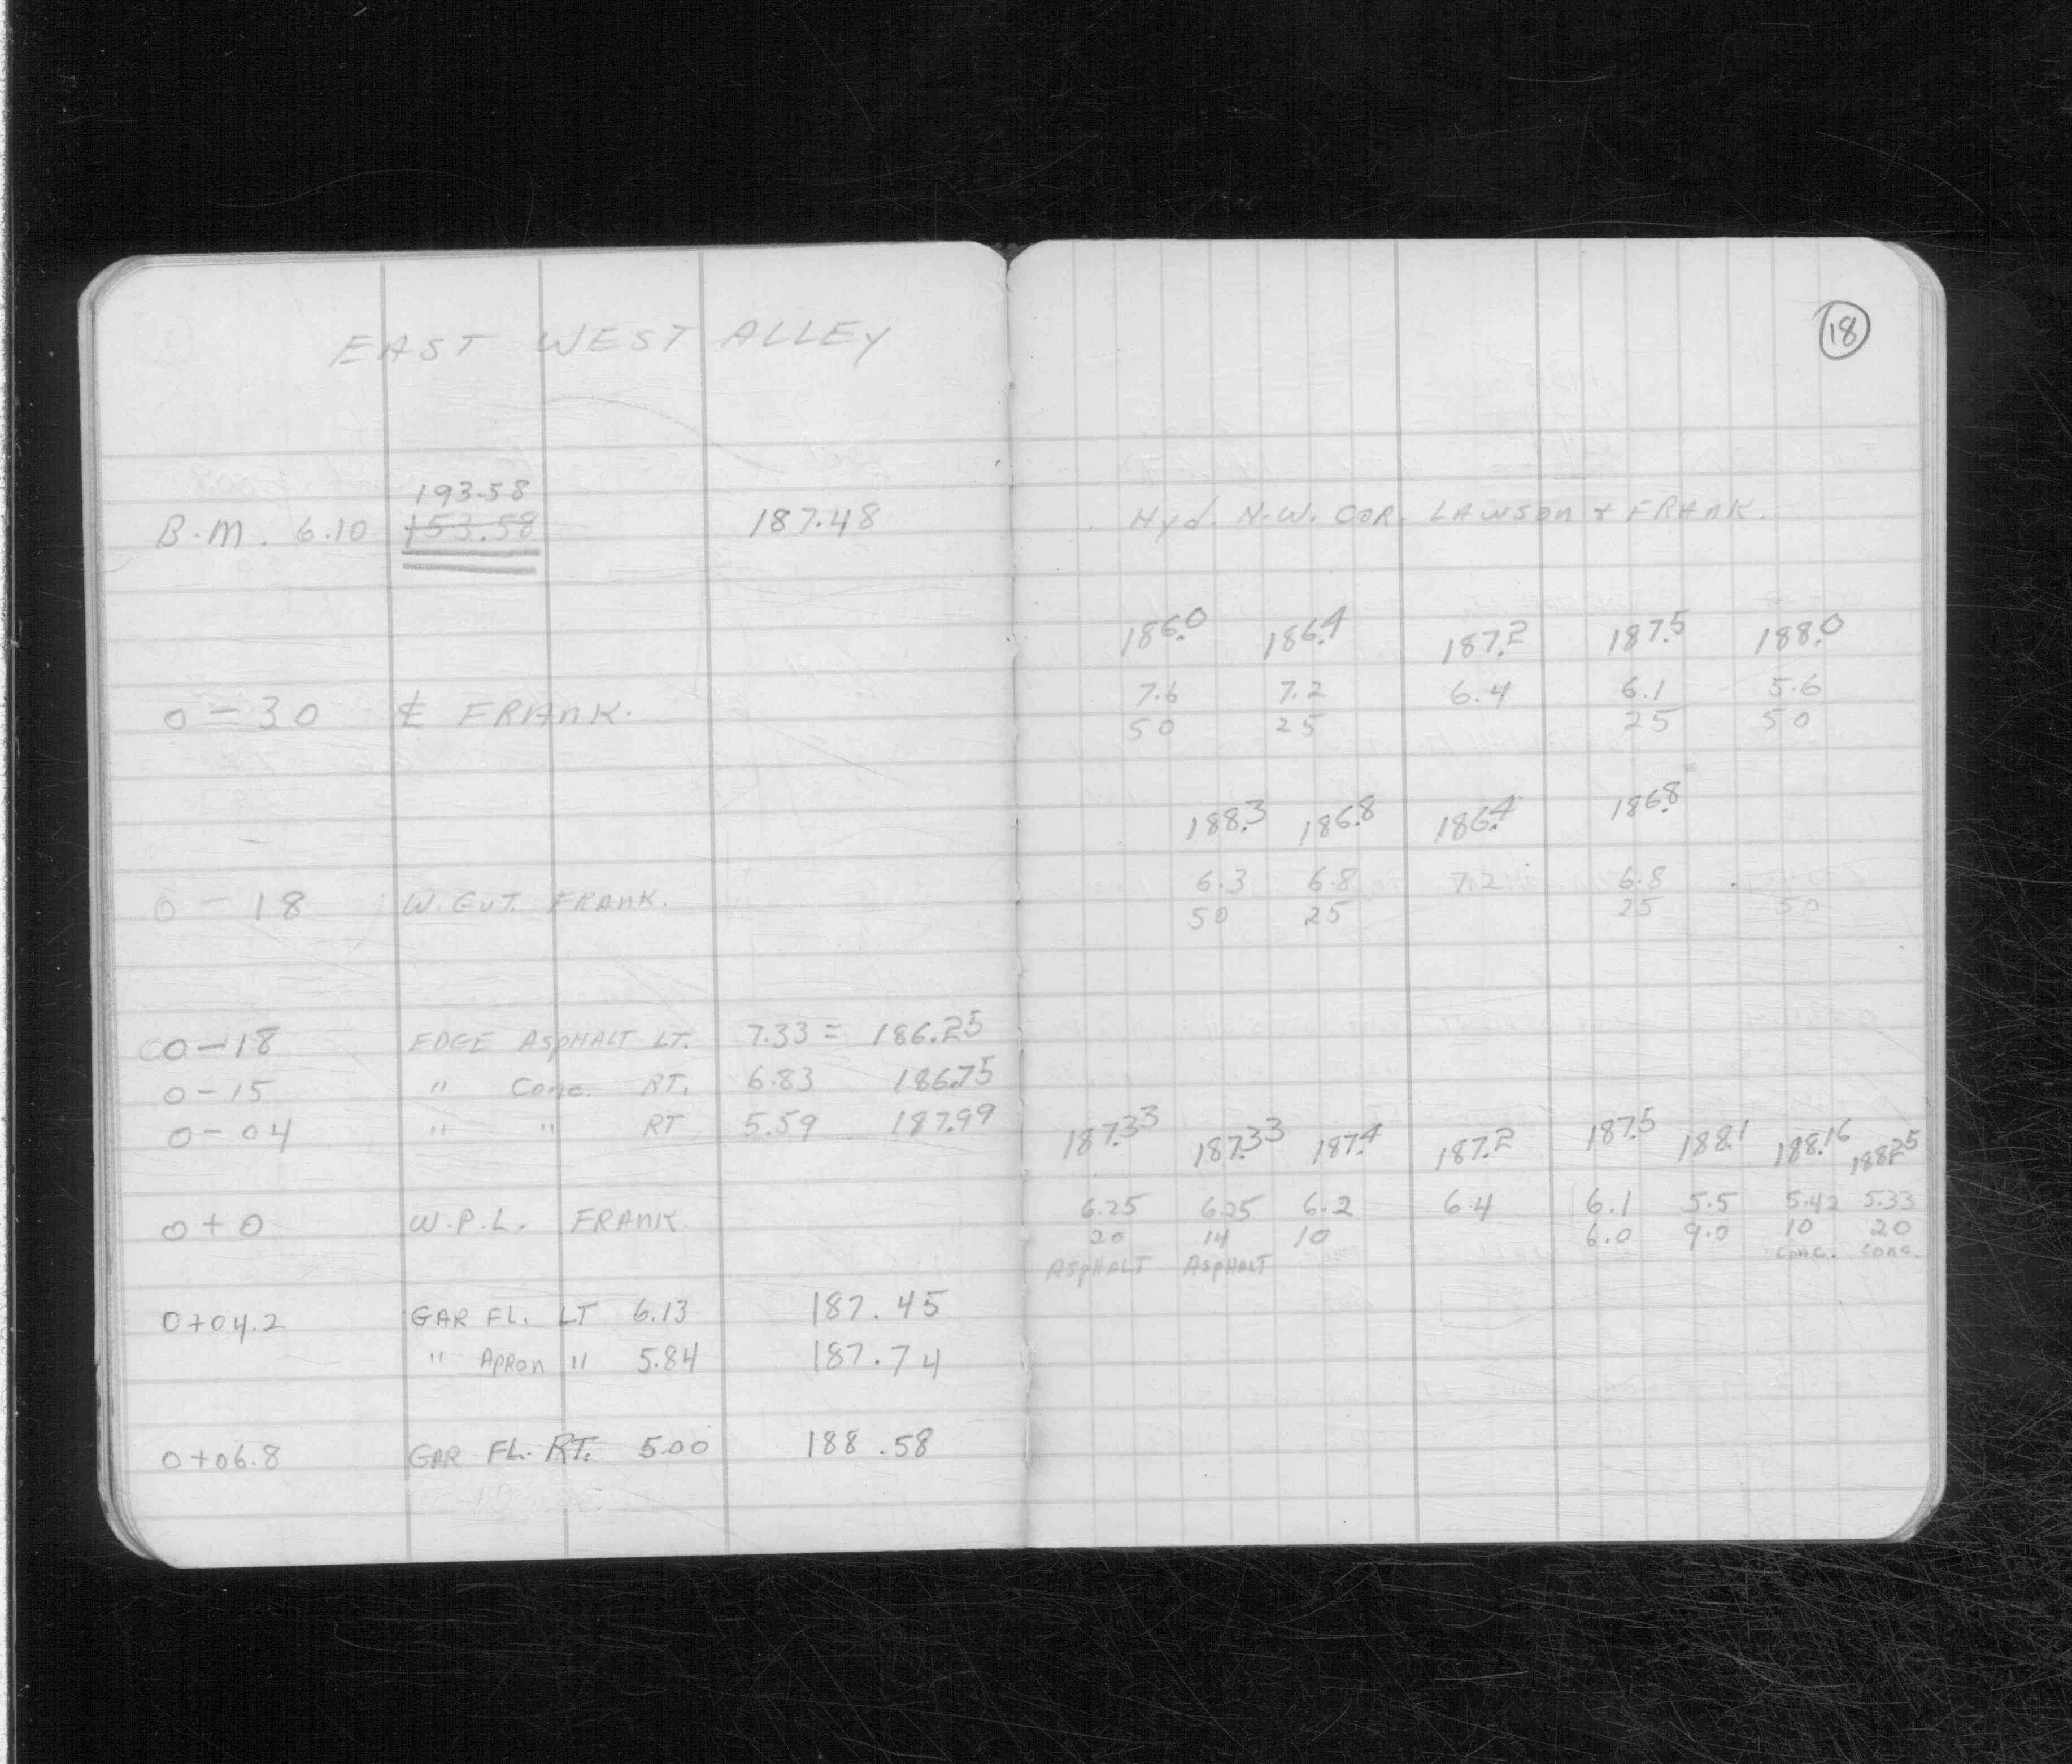 EAST WEST ALLEY
18
193.58
B.M. 6.10 153.58 187.48 Hyd. N.W. COR. LAWSON & FRANK.
186.0 186.4 187.2 187.5 188.0
7.6 7.2 6.4 6.1 5.6
0-30 ℄ FRANK. 50 25 25 50
188.3 186.8 186.4 186.8
6.3 6.8 7.2 6.8
0-18 W. GUT. FRANK. 50 25 25 50
0-18 EDGE ASPHALT LT. 7.33 = 186.25
0-15 " CONC. RT. 6.83 186.75
0-04 " " RT 5.59 187.99
187.33 187.33 187.4 187.2 187.5 188.1 188.16 188.25
6.25 6.25 6.2 6.4 6.1 5.5 5.42 5.33
0+0 W.P.L. FRANK 20 14 10 6.0 9.0 10 20
ASPHALT ASPHALT CONC. CONC.
0+04.2 GAR FL. LT 6.13 187.45
" APRON " 5.84 187.74
0+06.8 GAR FL. RT. 5.00 188.58